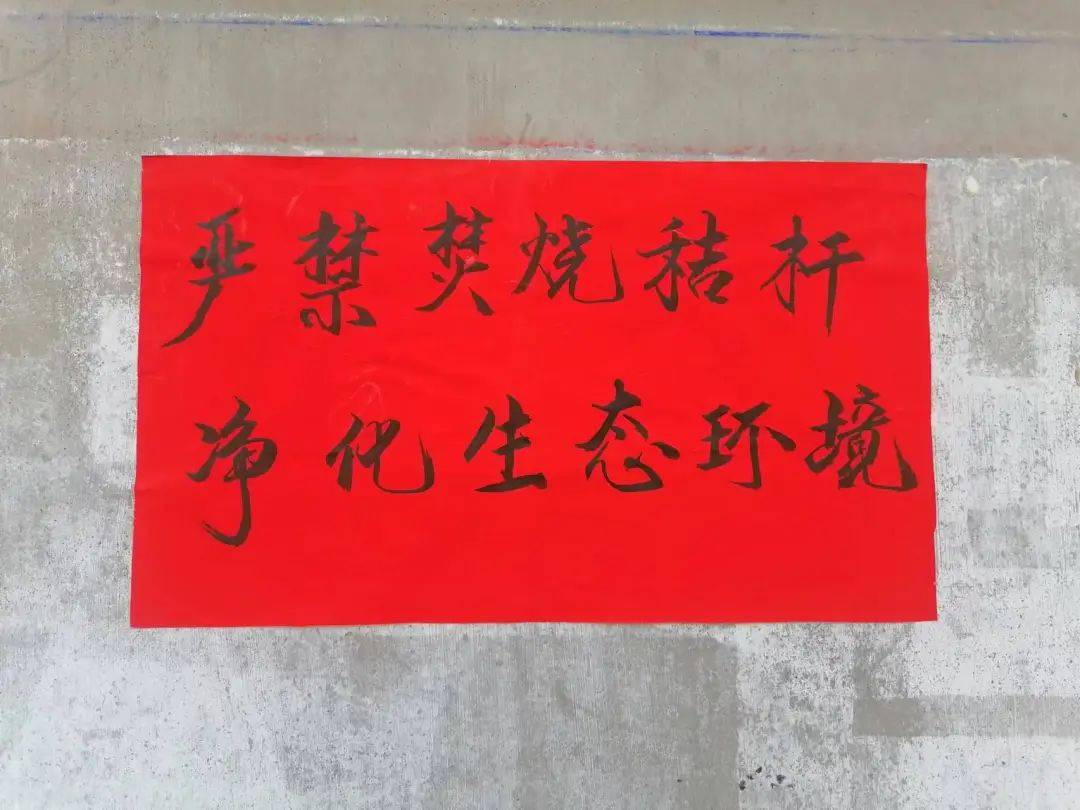 严禁焚烧秸杆
净化生态环境